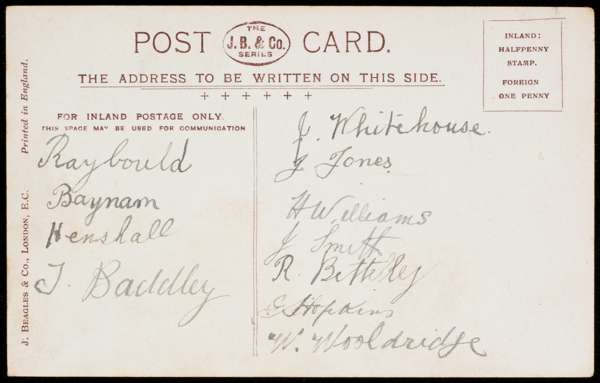 POST THE J.B. & Co. SERIES CARD.
THE ADDRESS TO BE WRITTEN ON THIS SIDE.
INLAND:
HALFPENNY
STAMP.
FOREIGN
ONE PENNY
FOR INLAND POSTAGE ONLY
THIS SPACE MAY BE USED FOR COMMUNICATION
Raybould
Baynam
Henshall
J Baddley
J. Whitehouse.
J Jones
H Williams
J Smith
R. Bitteley
G Hopkins
W. Wooldridge
Printed in England.
J. BEAGLES & CO., LONDON, E.C.